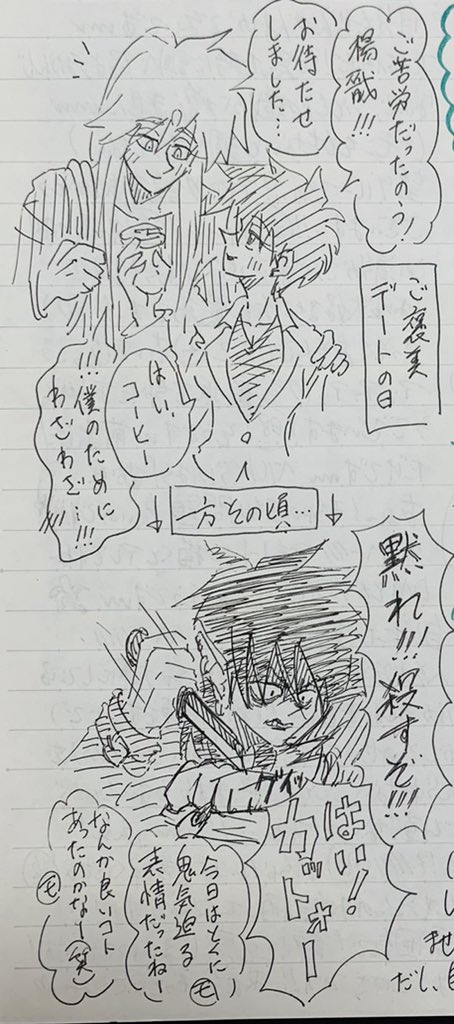 ご苦労だったのう！
楊戩!!!
お待たせ
しました…
ご褒美
デートの日
はい、
コーヒー
!!! 僕のために
わざわざ…!!!
一方その頃…
黙れ!!! 殺すぞ!!!
グイッ
はい！
カットォー
今日はとくに
鬼気迫る
表情だったねー
モ
なんか良いコト
あったのかなー(笑)
モ
ませ
だし、